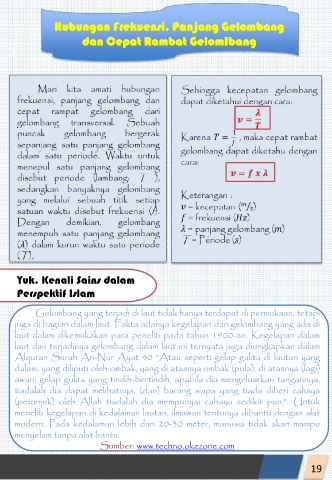 Hubungan Frekuensi, Panjang Gelombang
dan Cepat Rambat Gelomlbang
Mari kita amati hubungan
frekuensi, panjang gelombang dan
cepat rampat gelombang dari
gelombang transversal. Sebuah
puncak gelombang bergerak
sepanjang satu panjang gelombang
dalam satu periode. Waktu untuk
menepul satu panjang gelombang
disebut periode (lambang: T ),
sedangkan banyaknya gelombang
yang melalui sebuah titik setiap
satuan waktu disebut frekuensi (f).
Dengan demikian, gelombang
menempuh satu panjang gelombang
(λ) dalam kurun waktu satu periode
(T).
Sehingga kecepatan gelombang
dapat diketahui dengan cara:
v = λ/T
Karena T = 1/f , maka cepat rambat
gelombang dapat diketahu dengan
cara:
v = f x λ
Keterangan :
v = kecepatan (m/s)
f = frekuensi (Hz)
λ = panjang gelombang (m)
T = Periode (s)
Yuk, Kenali Sains dalam
Perspektif Islam
Gelombang yang terjadi di laut tidak hanya terdapat di permukaan, tetapi
juga di bagian dalam laut. Fakta adanya kegelapan dan gelombang yang ada di
laut dalam dikemukakan para peneliti pada tahun 1900-an. Kegelapan dalam
laut dan terjadinya gelombang dalam laut ini ternyata juga diungkapkan dalam
Alquran Surah An-Nur Ayat 40 "Atau seperti gelap gulita di lautan yang
dalam, yang diliputi oleh ombak, yang di atasnya ombak (pula), di atasnya (lagi)
awan; gelap gulita yang tindih-bertindih, apabila dia mengeluarkan tangannya,
tiadalah dia dapat melihatnya, (dan) barang siapa yang tiada diberi cahaya
(petunjuk) oleh Allah tiadalah dia mempunyai cahaya sedikit pun,". Untuk
meneliti kegelapan di kedalaman lautan, ilmuwan tentunya dibantu dengan alat
modern. Pada kedalaman lebih dari 20-30 meter, manusia tidak akan mampu
menyelam tanpa alat bantu.
Sumber: www.techno.okezone.com
19